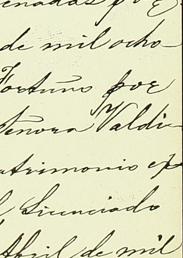 enadas por
de mil ocho-
Fortuño por
Señora Valdi-
atrimonio ex
l Licenciado
Abril de mil